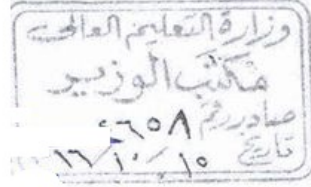 وزارة التعليم العالي
مكتب الوزير
صادر رقم ٠٦٥٨
تاريخ ١٦/١٠/١٥